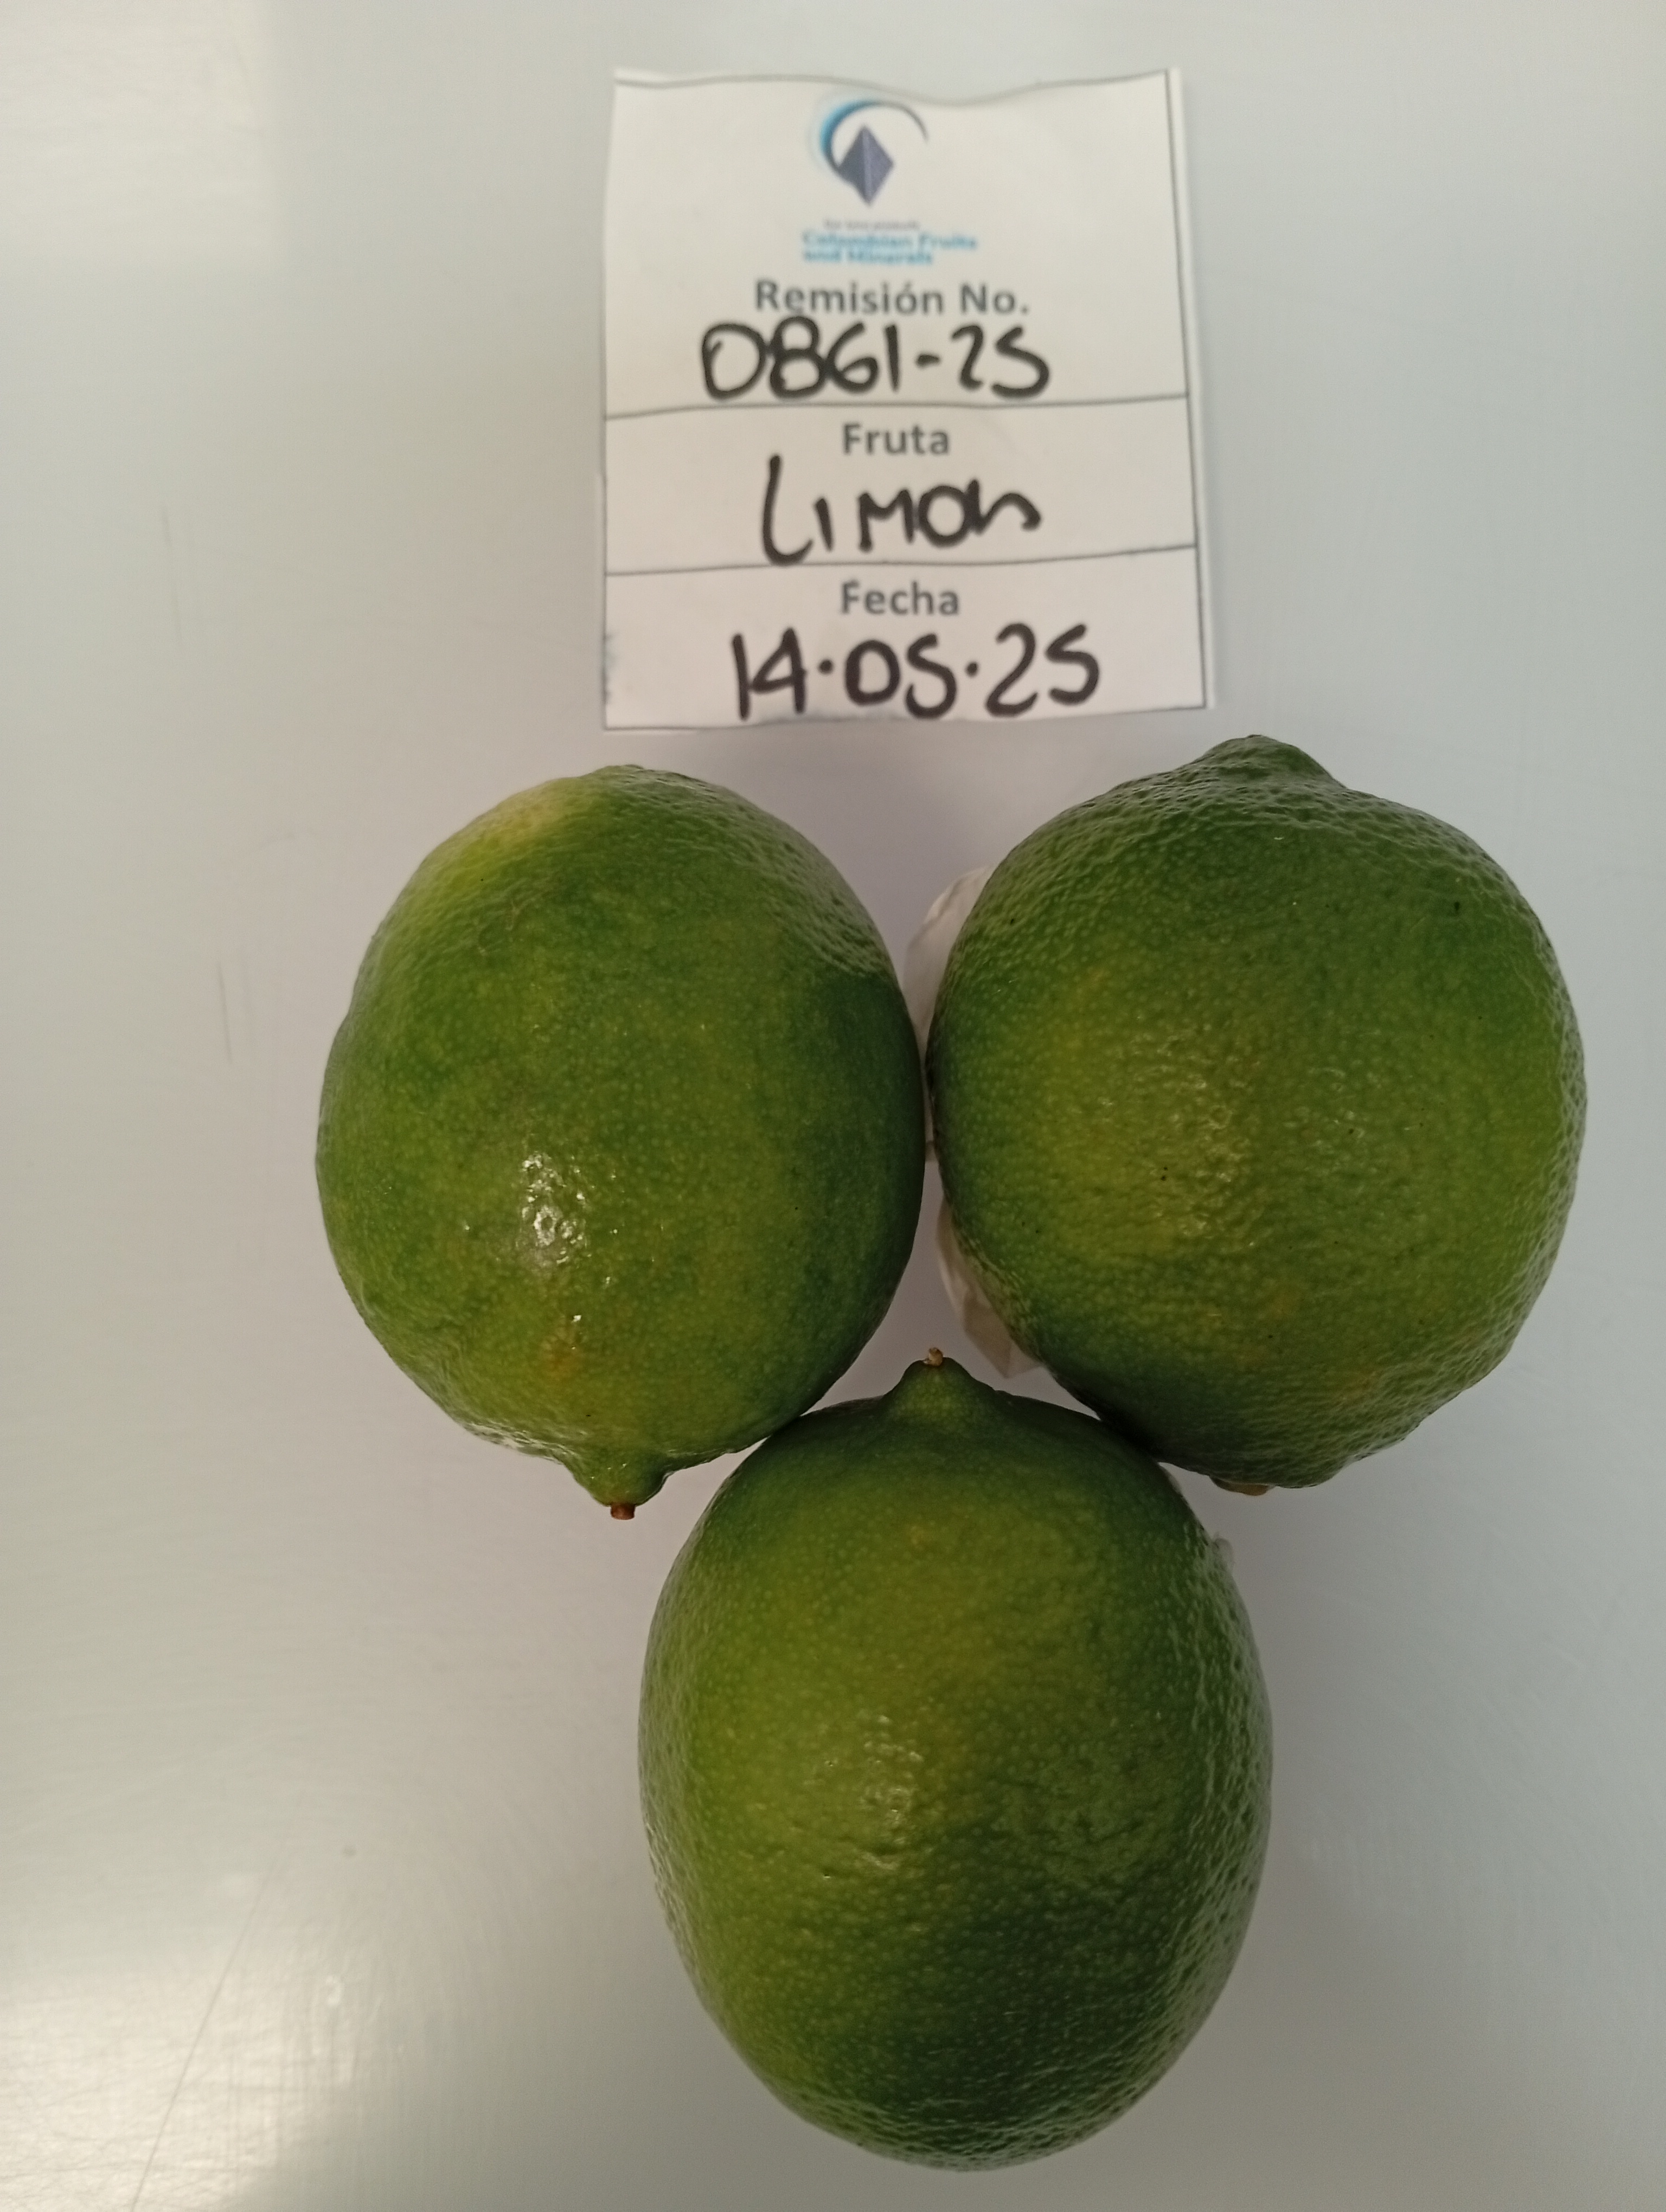 Colombian Fruits
and Minerals
Remisión No.
0861-25
Fruta
LIMON
Fecha
14.05.25